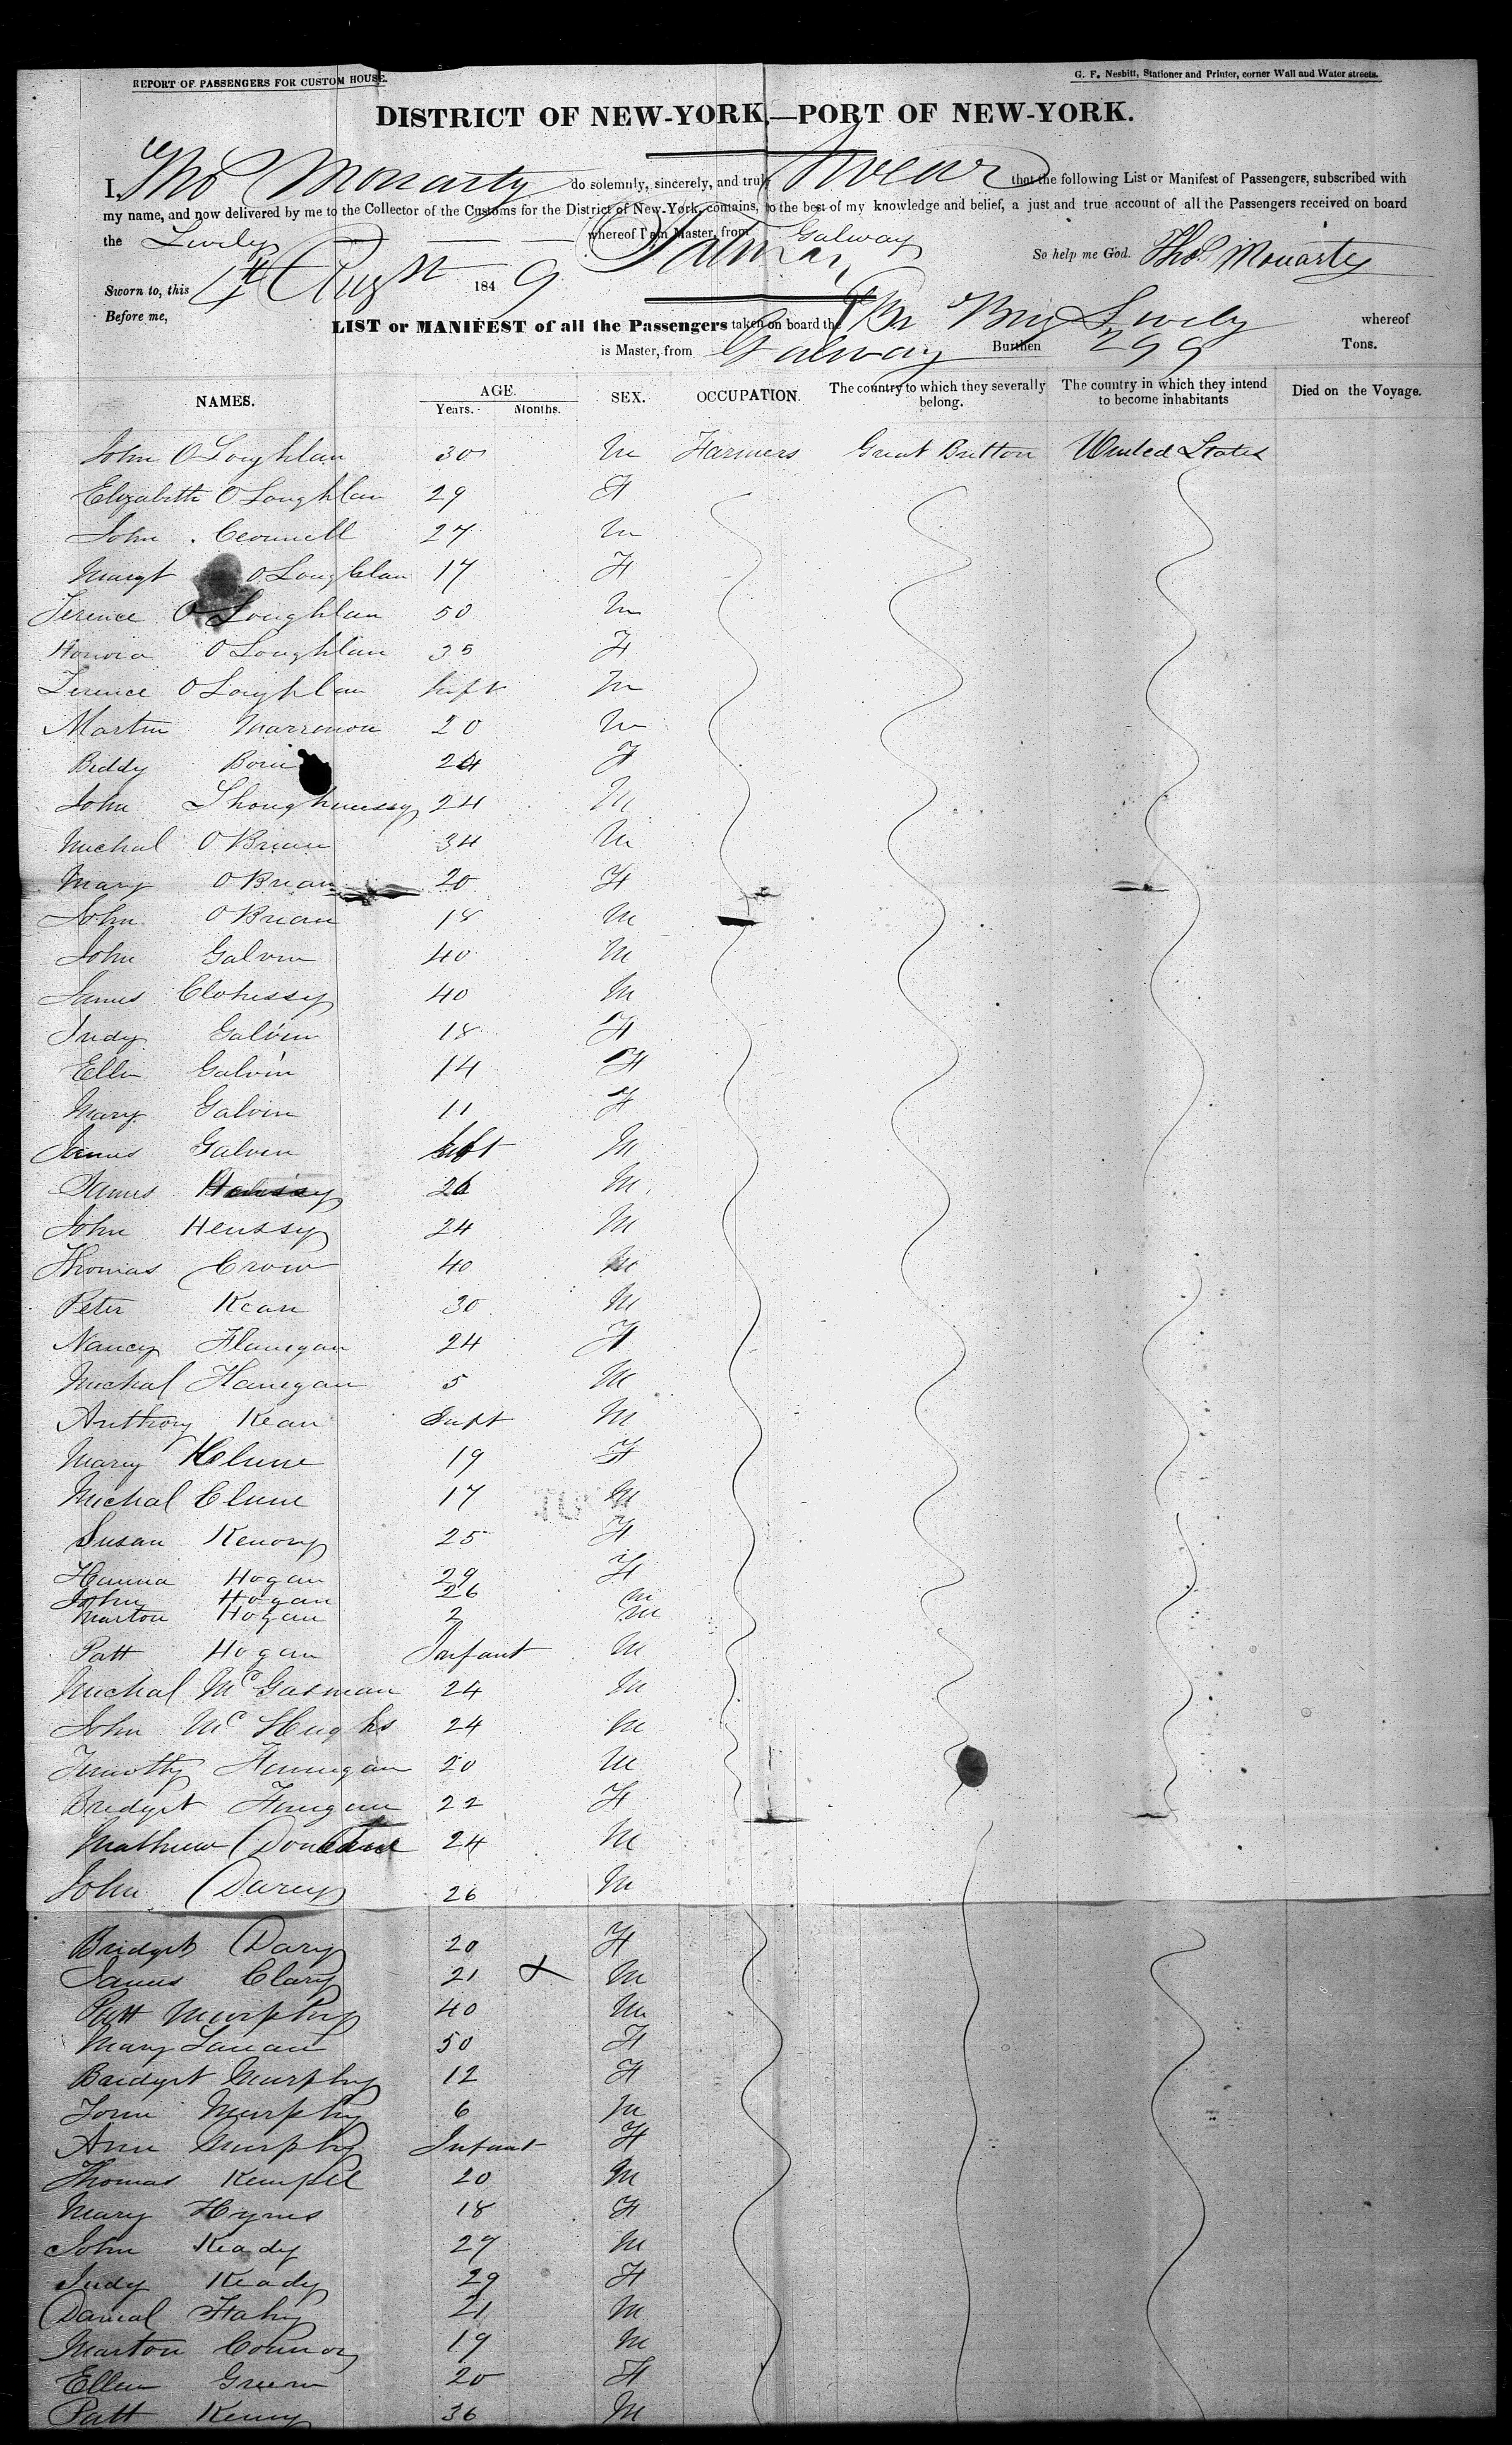 REPORT OF PASSENGERS FOR CUSTOM HOUSE.
G. F. Nesbitt, Stationer and Printer, corner Wall and Water streets.
DISTRICT OF NEW-YORK,—PORT OF NEW-YORK.
I, Tho Moriarty do solemnly, sincerely, and truly Swear that the following List or Manifest of Passengers, subscribed with
my name, and now delivered by me to the Collector of the Customs for the District of New-York, contains, to the best of my knowledge and belief, a just and true account of all the Passengers received on board
the Lively whereof I am Master, from Galway
So help me God. Thos. Moriarty
Sworn to, this 4th August 1849
Before me,
LIST or MANIFEST of all the Passengers taken on board the Br Brig Lively whereof
is Master, from Galway Burthen 299 Tons.
NAMES. AGE. Years. Months. SEX. OCCUPATION. The country to which they severally belong. The country in which they intend to become inhabitants Died on the Voyage.
John O Loughlan 30 M Farmers Great Britton United States
Elizabeth O Loughlan 29 F
John Connell 27 M
Margt O Loughlan 17 F
Terence O Loughlan 50 M
Honora O Loughlan 35 F
Terence O Loughlan Inft M
Martin 20 M
Biddy 24 F
John Shoughnessy 24 M
Michal O Brian 34 M
Mary O Brian 20 F
John O Brian 18 M
John Galvin 40 M
James Clohessy 40 M
Judy Galvin 18 F
Ellen Galvin 14 F
Mary Galvin 11 F
James Galven Inft M
James 26 M
John Henssy 24 M
Thomas Crow 40 M
Peter Kean 30 M
Nancy Flanegan 24 F
Michal Flanegan 5 M
Anthony Kean Inft M
Mary Clune 19 F
Michal Clune 17 M
Susan Kenory 25 F
Hanna Hogan 29 F
John Hogan 26 M
Marton Hogan 2 M
Patt Hogan Infant M
Michal Mc Gasman 24 M
John Mc Hughs 24 M
Timothy Hannegan 20 M
Bridgct 22 F
Mathew 24 M
John Darcy 26 M
Bridget Dary 20 F
James Clary 21 x M
Patt Murphy 40 M
Mary Lanan 50 F
Bridget Murphy 12 F
Murphy 6 M
Ann Murphy Infant F
Thomas 20 M
Mary Hyns 18 F
John Keady 27 M
Judy Keady 29 F
Danial Fahy 21 M
Marton Connor 19 M
Ellen Green 20 F
Patt Kenny 36 M